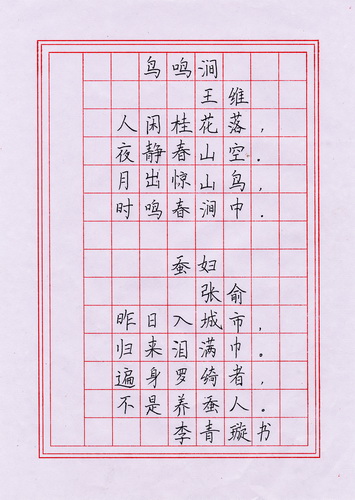 鸟鸣涧
王维
人闲桂花落，
夜静春山空．
月出惊山鸟，
时鸣春涧中．
蚕妇
张俞
昨日入城市，
归来泪满巾。
遍身罗绮者，
不是养蚕人．
李青璇书